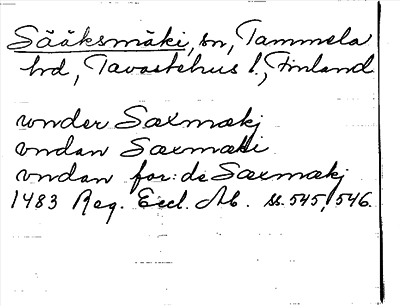 Sääksmäki, sn, Tammela
hd, Tavastehus l., Finland
vnder Saxmakj
vndan Saxmaki
vndan for: de Saxmakj
1483 Reg. Eccl. Ab. ss. 545, 546.